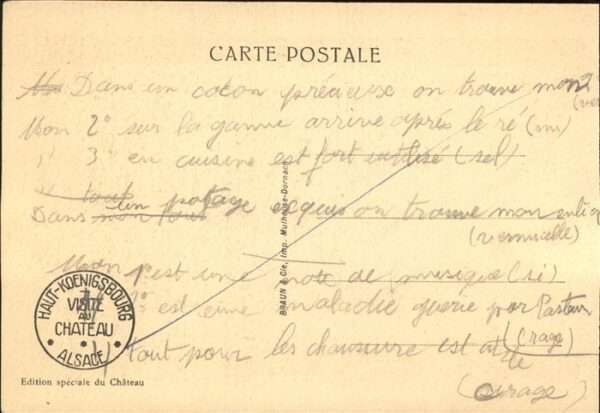 CARTE POSTALE
Dans un cocon précieuse on trouve mon 2
(ver
Mon 2° sur la gamme arrive après le ré (mi)
" 3° en cuisine est fort utilisé (sel)
tout un potage exquis on trouve mon entie
Dans mon tout
(vermicelle)
Mon 1° est une note de musique (si)
2° est une maladie guerie par Pasteur
(rage)
tout pour les chaussure est utile
(cirage)
HAUT-KOENIGSBOURG
VISITE
AU
CHATEAU
ALSACE
BRAUN & Cie, Imp. Mulhouse-Dornach
Edition spéciale du Château